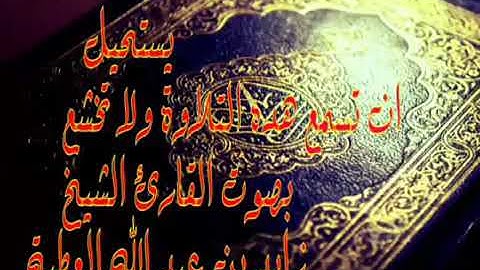 يستحيل
ان تسمع هذه التلاوة ولا تخشع
بصوت القارئ الشيخ
عبد الله